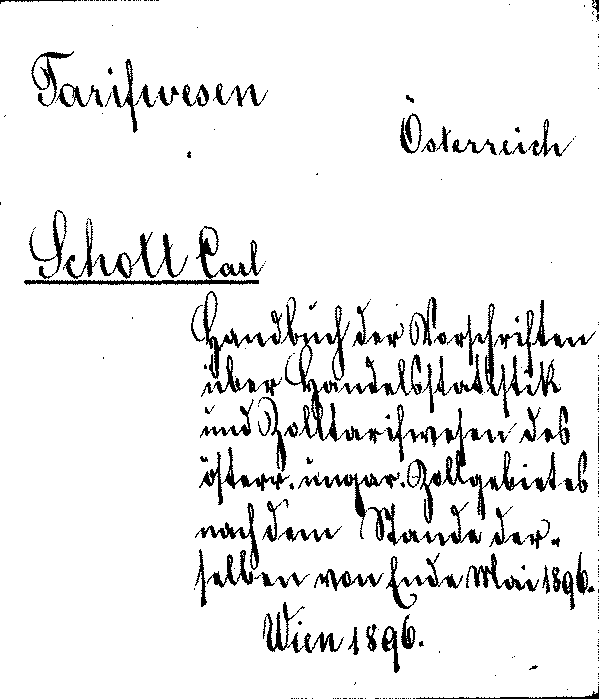 Tarifwesen
Österreich
Schott Carl
Handbuch der Vorschriften
über Handelsstatistik
und Zolltarifwesen des
österr. ungar. Zollgebietes
nach dem Stande der-
selben von Ende Mai 1896.
Wien 1896.